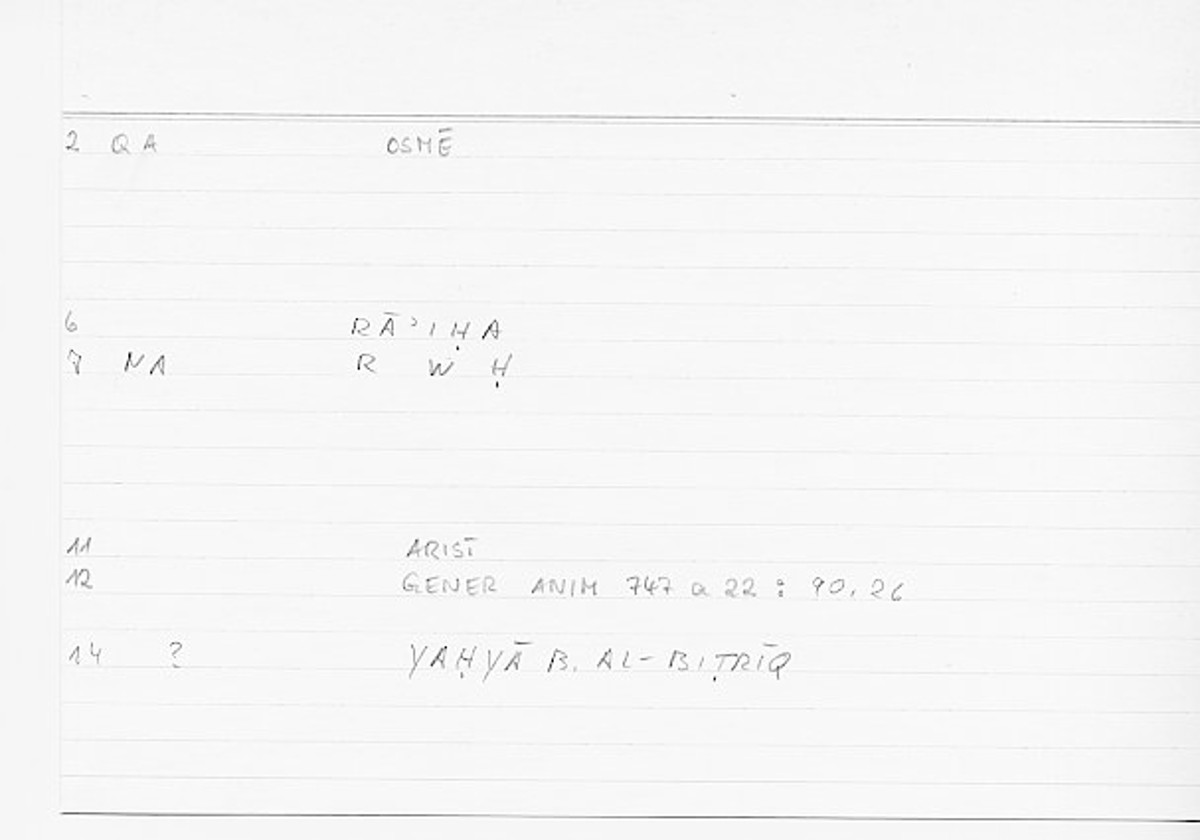 2 QA OSMĒ
6 RĀʾIḤA
7 NA R W Ḥ
11 ARIST
12 GENER ANIM 747 a 22 : 90,26
14 ? YAḤYĀ B. AL-BIṬRĪQ